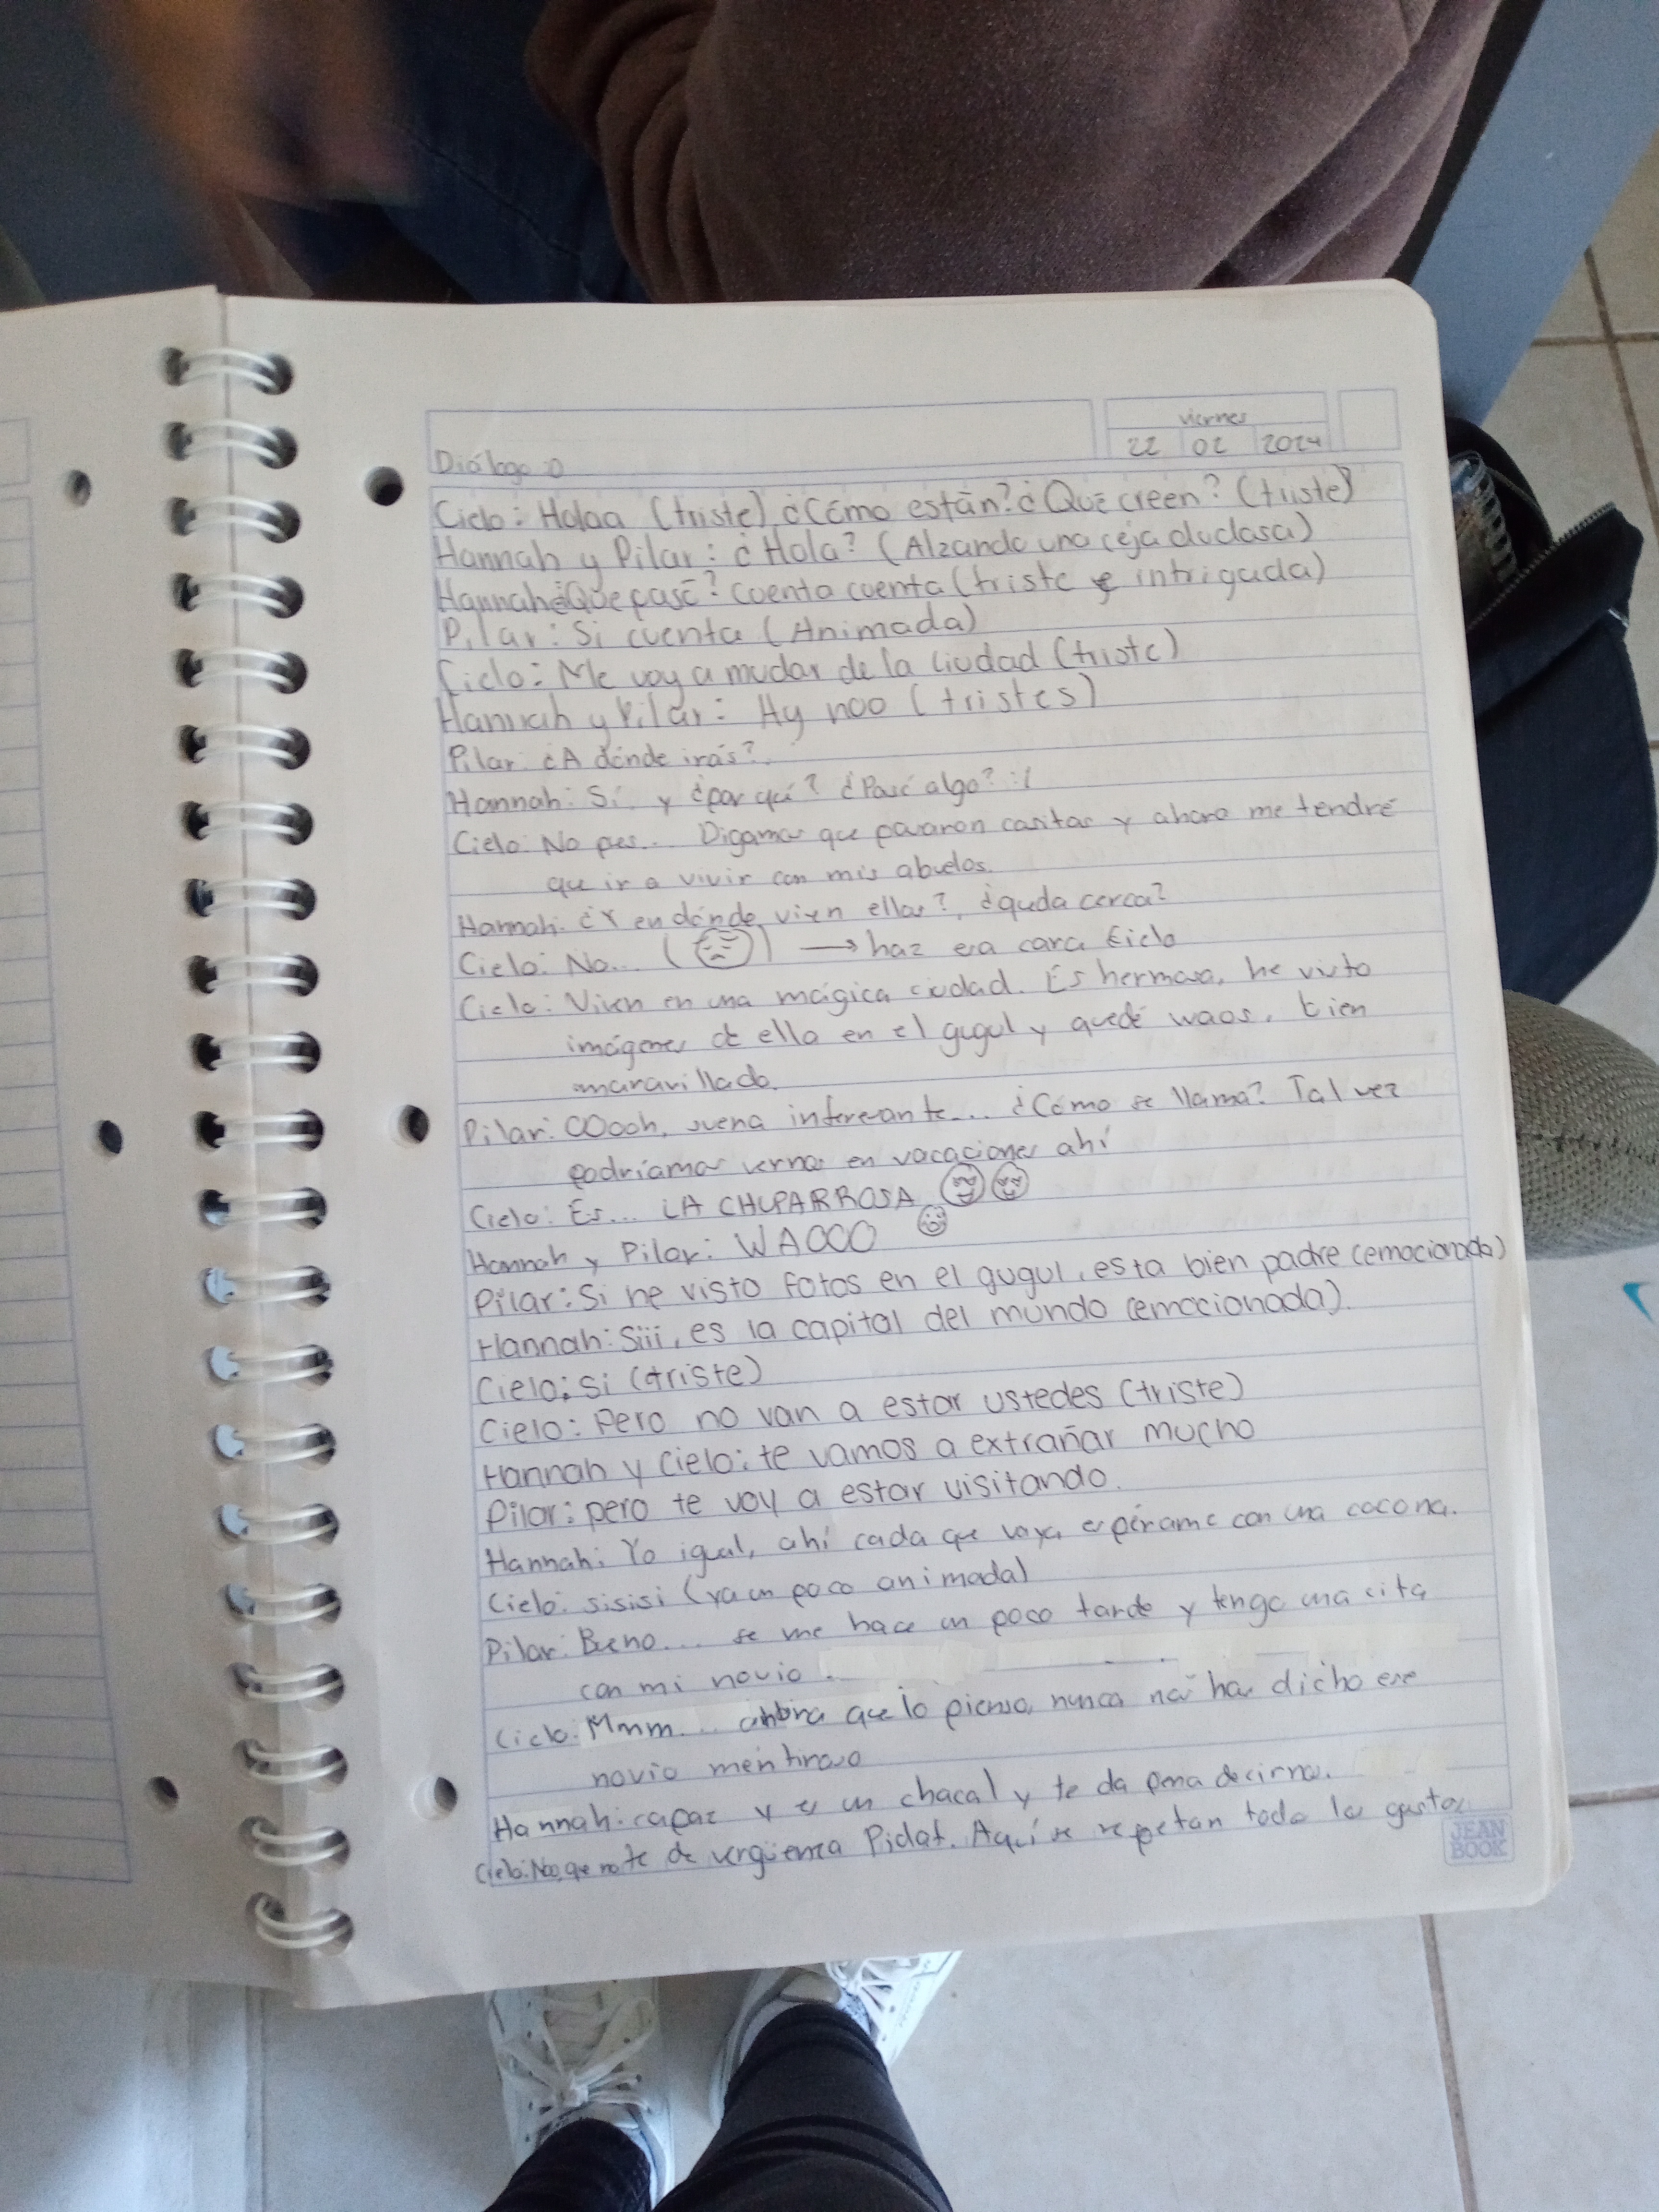 viernes
22 02 2024
Diálogo :0
Cielo: Holaa (triste) ¿Cómo están? ¿Qué creen? (triste)
Hannah y Pilar: ¿Hola? (Alzando una ceja dudosa)
Hannah: ¿Qué pasó? cuenta cuenta (triste e intrigada)
Pilar: Si cuenta (Animada)
Cielo: Me voy a mudar de la ciudad (triste)
Hannah y Pilar: Ay noo (tristes)
Pilar: ¿A dónde irás?
Hannah: Sí, y ¿por qué? ¿Pasó algo? :(
Cielo: No pues... Digamos que pasaron cositas y ahora me tendré
que ir a vivir con mis abuelos.
Hannah: ¿Y en dónde viven ellos?, ¿queda cerca?
Cielo: No... ( ) → haz esa cara Cielo
Cielo: Viven en una mágica ciudad. Es hermosa, he visto
imágenes de ella en el gugul y quedé waos, bien
maravillada.
Pilar: OOooh, suena interesante... ¿Cómo se llama? Tal vez
podríamos vernos en vacaciones ahí
Cielo: Es... LA CHUPARROSA
Hannah y Pilar: WAOOO
Pilar: Si he visto fotos en el gugul, esta bien padre (emocionada)
Hannah: Siii, es la capital del mundo (emocionada).
Cielo: Si (triste)
Cielo: Pero no van a estar ustedes (triste)
Hannah y Cielo: te vamos a extrañar mucho
Pilar: pero te voy a estar visitando.
Hannah: Yo igual, ahí cada que vaya espérame con una cocona.
Cielo: sisisi (ya un poco animada)
Pilar: Bueno... se me hace un poco tarde y tengo una cita
con mi novio.
Cielo: Mmm... ahora que lo pienso, nunca nos has dicho ese
novio mentiroso
Hannah: capaz y es un chacal y te da pena decirnos.
Cielo: Noo, que no te de vergüenza Pidat. Aquí se respetan todo los gustos
JEAN BOOK